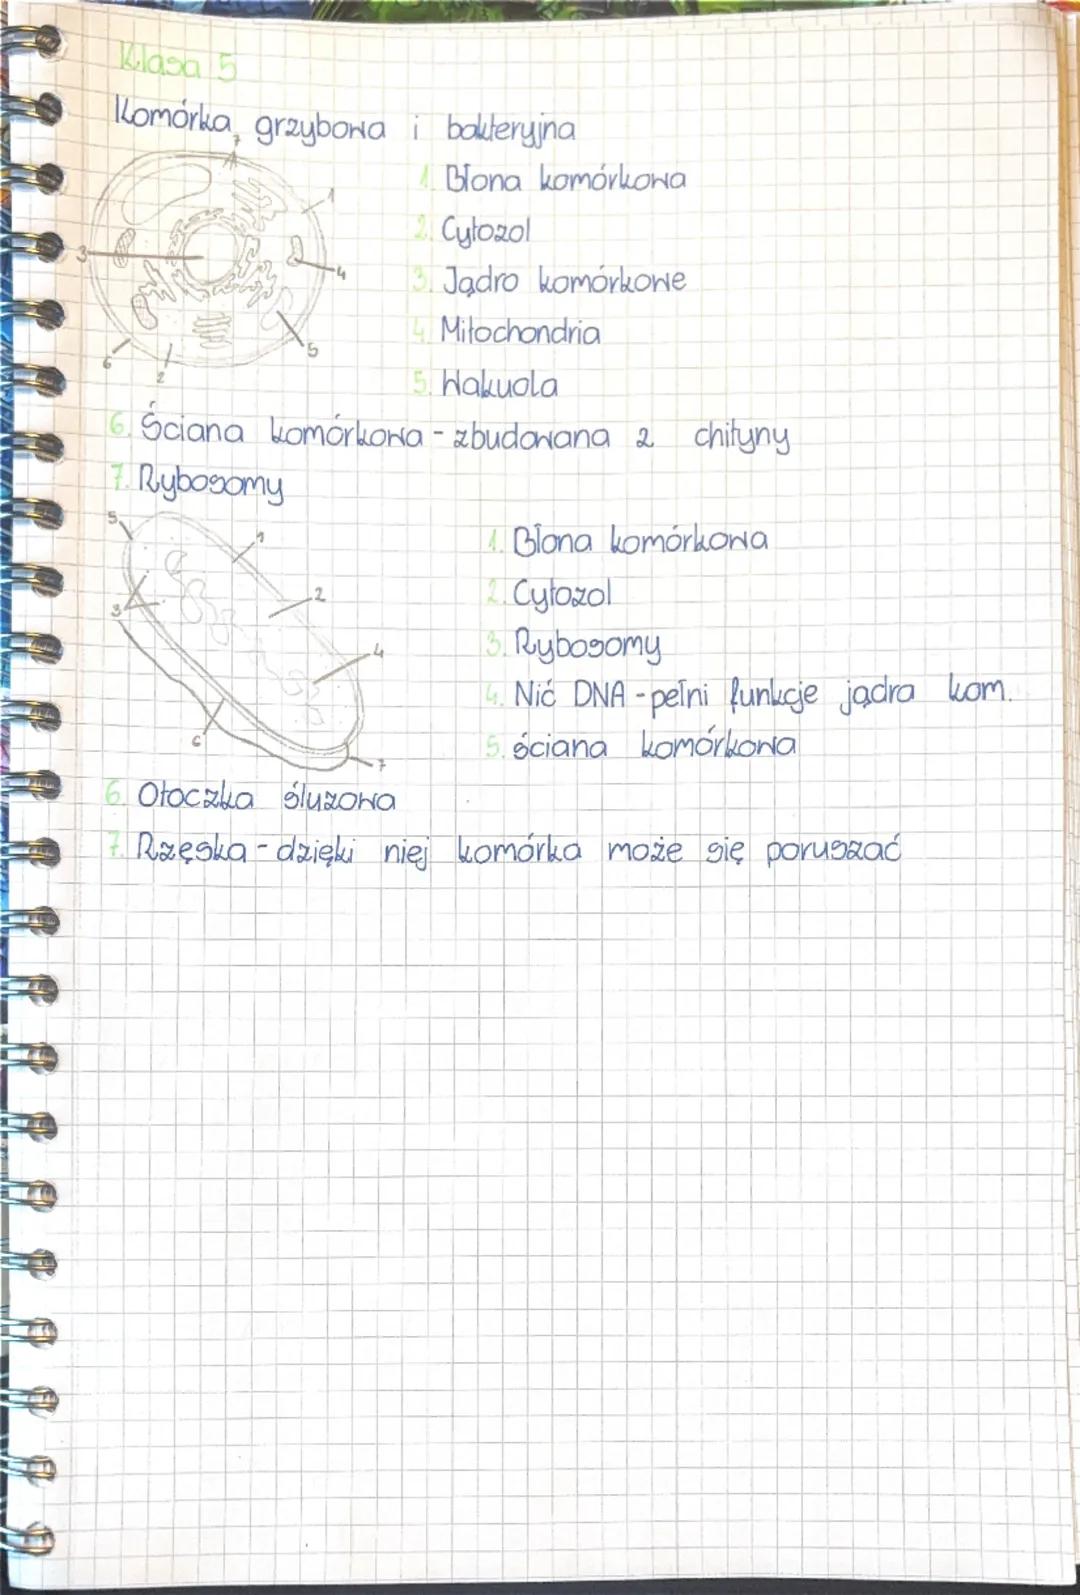 Klasa 5
Komórka grzybowa i bakteryjna
1. Błona komórkowa
2. Cytozol
3. Jądro komórkowe
4. Mitochondria
5. Wakuola
6. Ściana komórkowa - zbudowana z chityny
7. Rybosomy
7
1
3
4
5
6
2
1. Błona komórkowa
2. Cytozol
3. Rybosomy
4. Nić DNA - pełni funkcje jądra kom.
5. ściana komórkowa
5
1
2
3
4
6
7
6. Otoczka śluzowa
7. Rzęska - dzięki niej komórka może się poruszać